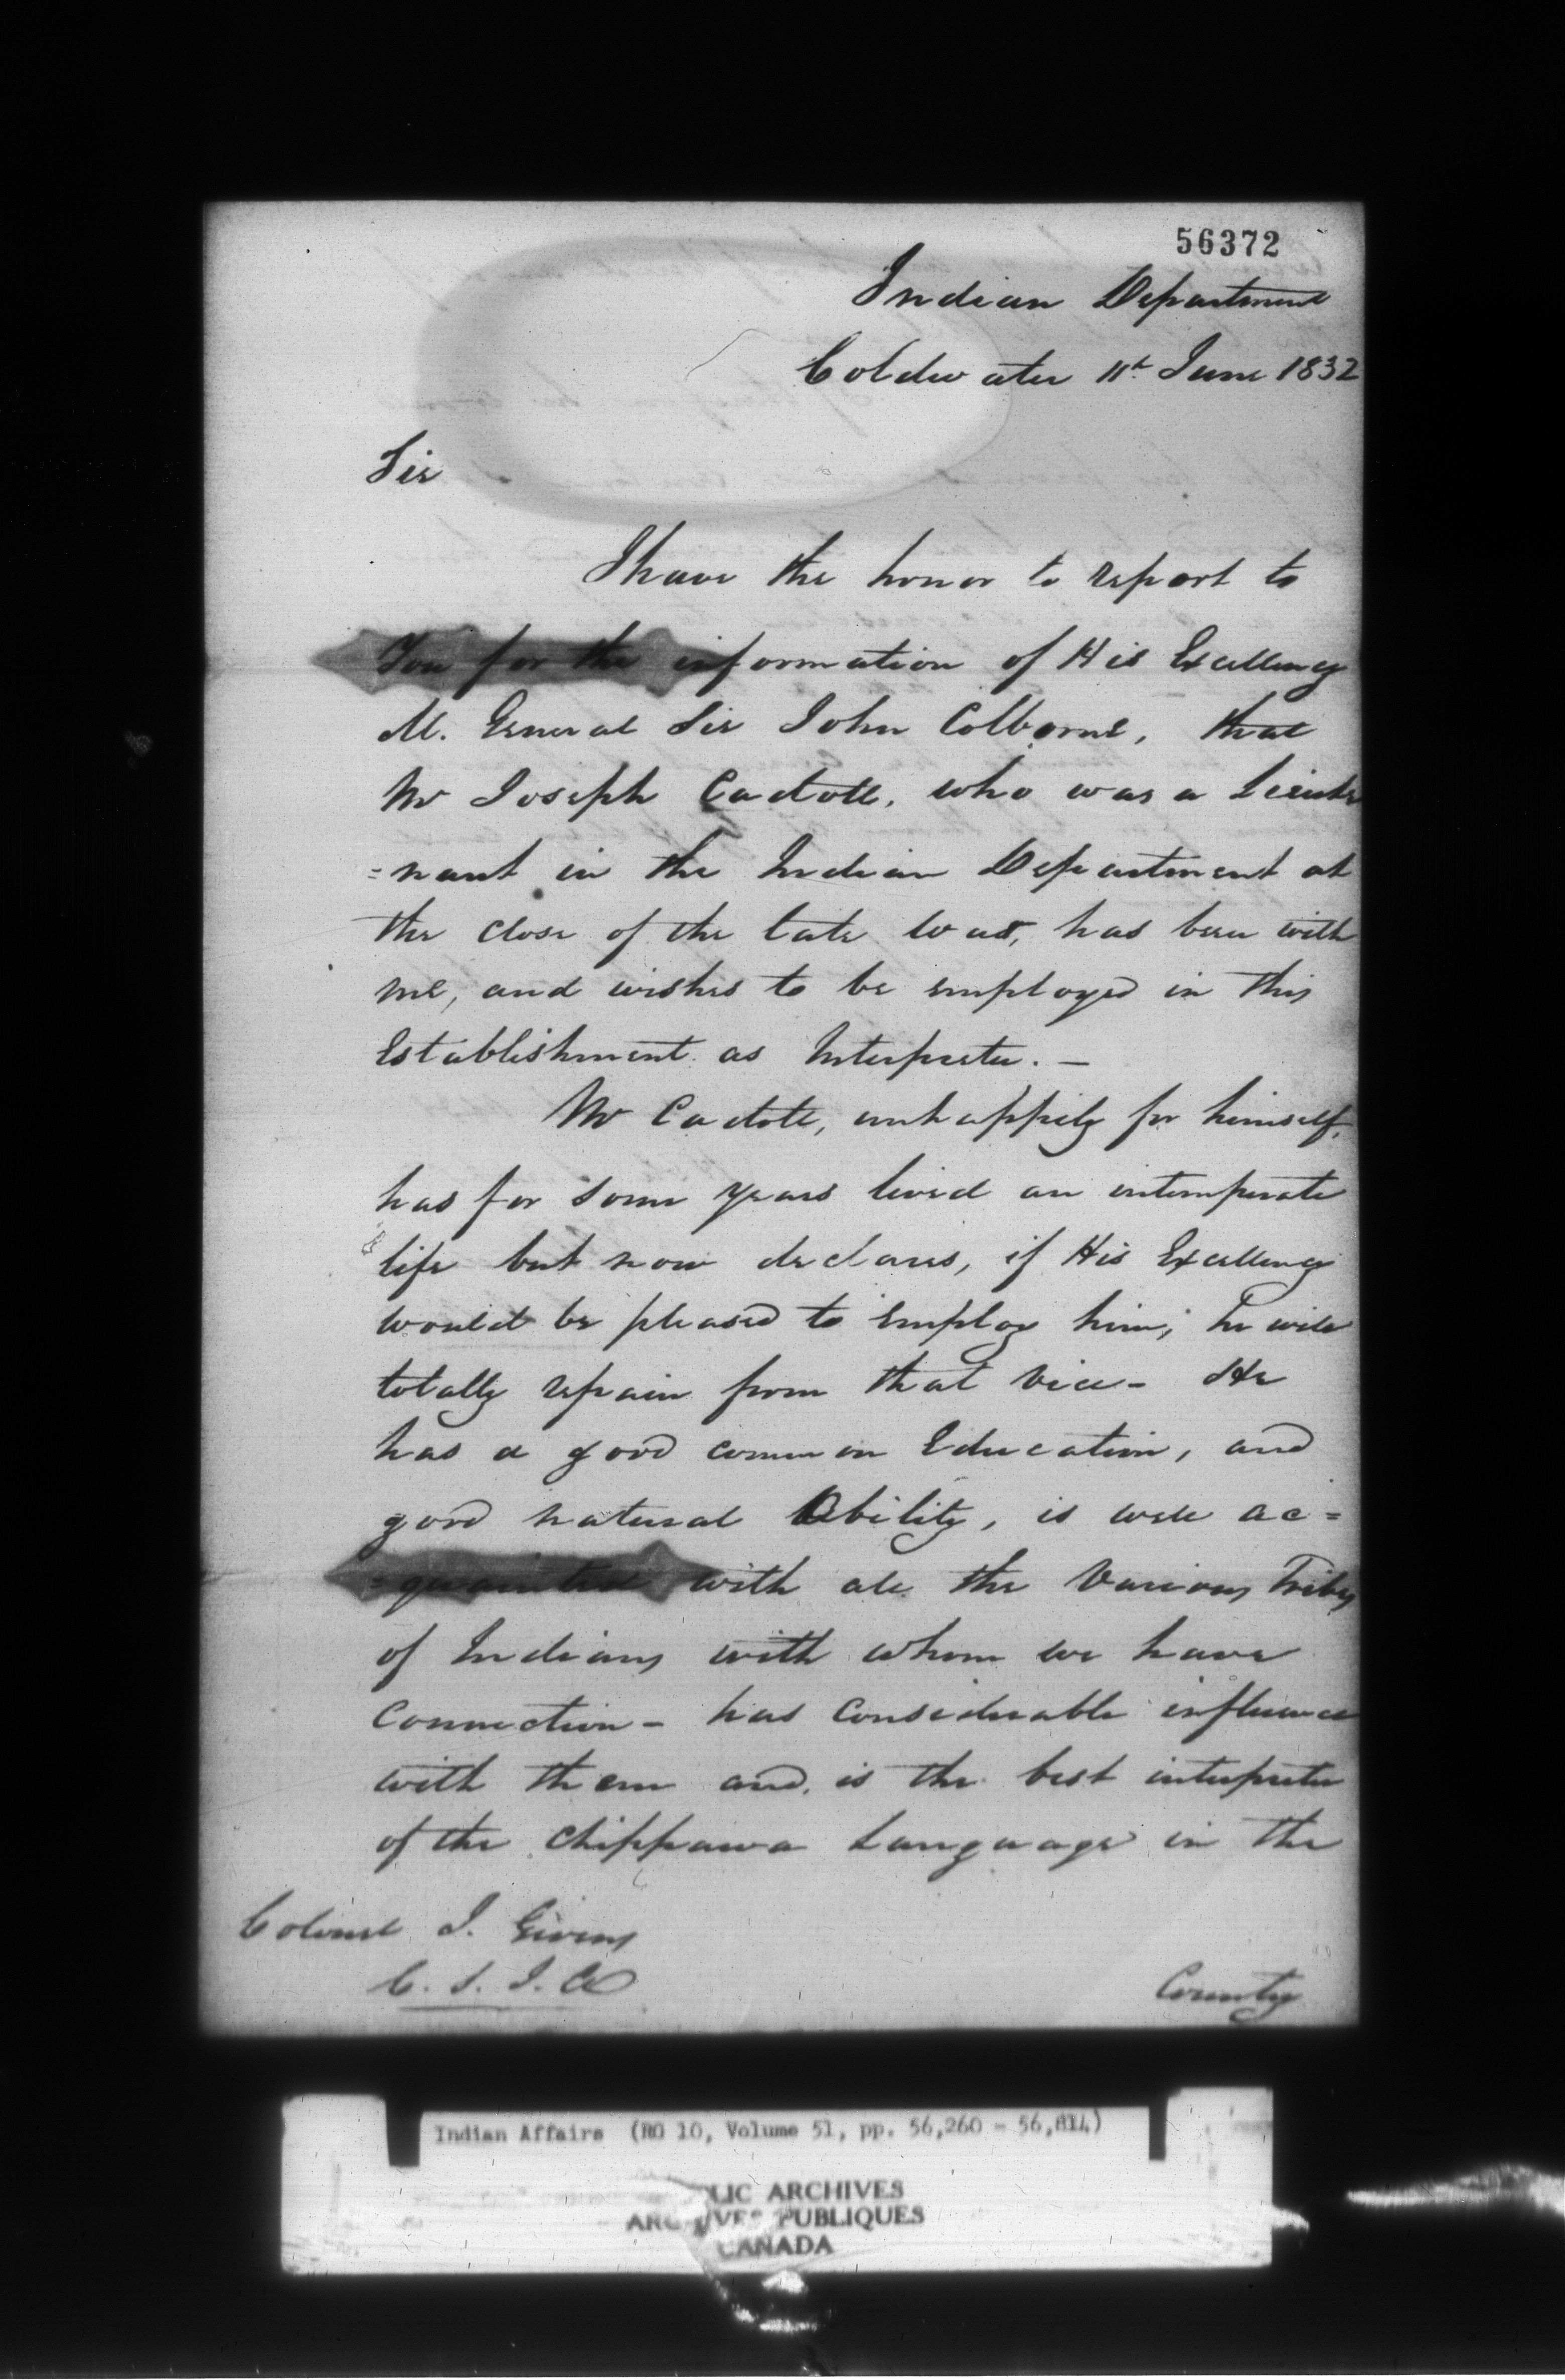 56372
Indian Department
Coldwater 11th June 1832
Sir
I have the honor to report to
You for the information of His Excellency
M. General Sir John Colborne, that
Mr Joseph Cadott, who was a Lieute
=nant in the Indian Department at
the close of the late War, has been with
me, and wishes to be employed in this
Establishment as Interpreter. —
Mr Cadott, unhappily for himself,
has for some years lived an intemperate
life but now declares, if His Excellency
would be pleased to employ him, he will
totally refrain from that vice - He
has a good common Education, and
good natural Ability, is well ac=
=quainted with all the Various Tribes
of Indians with whom we have
Connection - has Considerable influence
with them and is the best interpreter
of the Chippawa Language in the
Colonel J. Givins
C. S. I. A
County
Indian Affairs (RG 10, Volume 51, pp. 56,260 - 56,814)
LIC ARCHIVES
ARCHIVES PUBLIQUES
CANADA